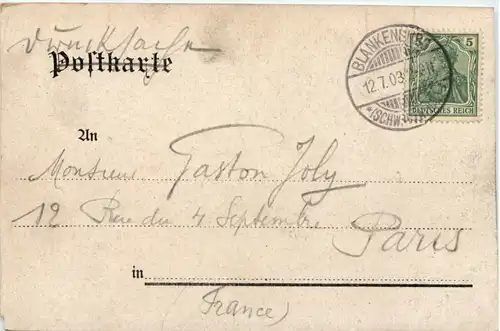 Drucksache
Postkarte
5
DEUTSCHES REICH
12.7.03
(SCHW
An
Monsieur Gaston Joly
12 Rue du 4 Septembre
Paris
in
(France)